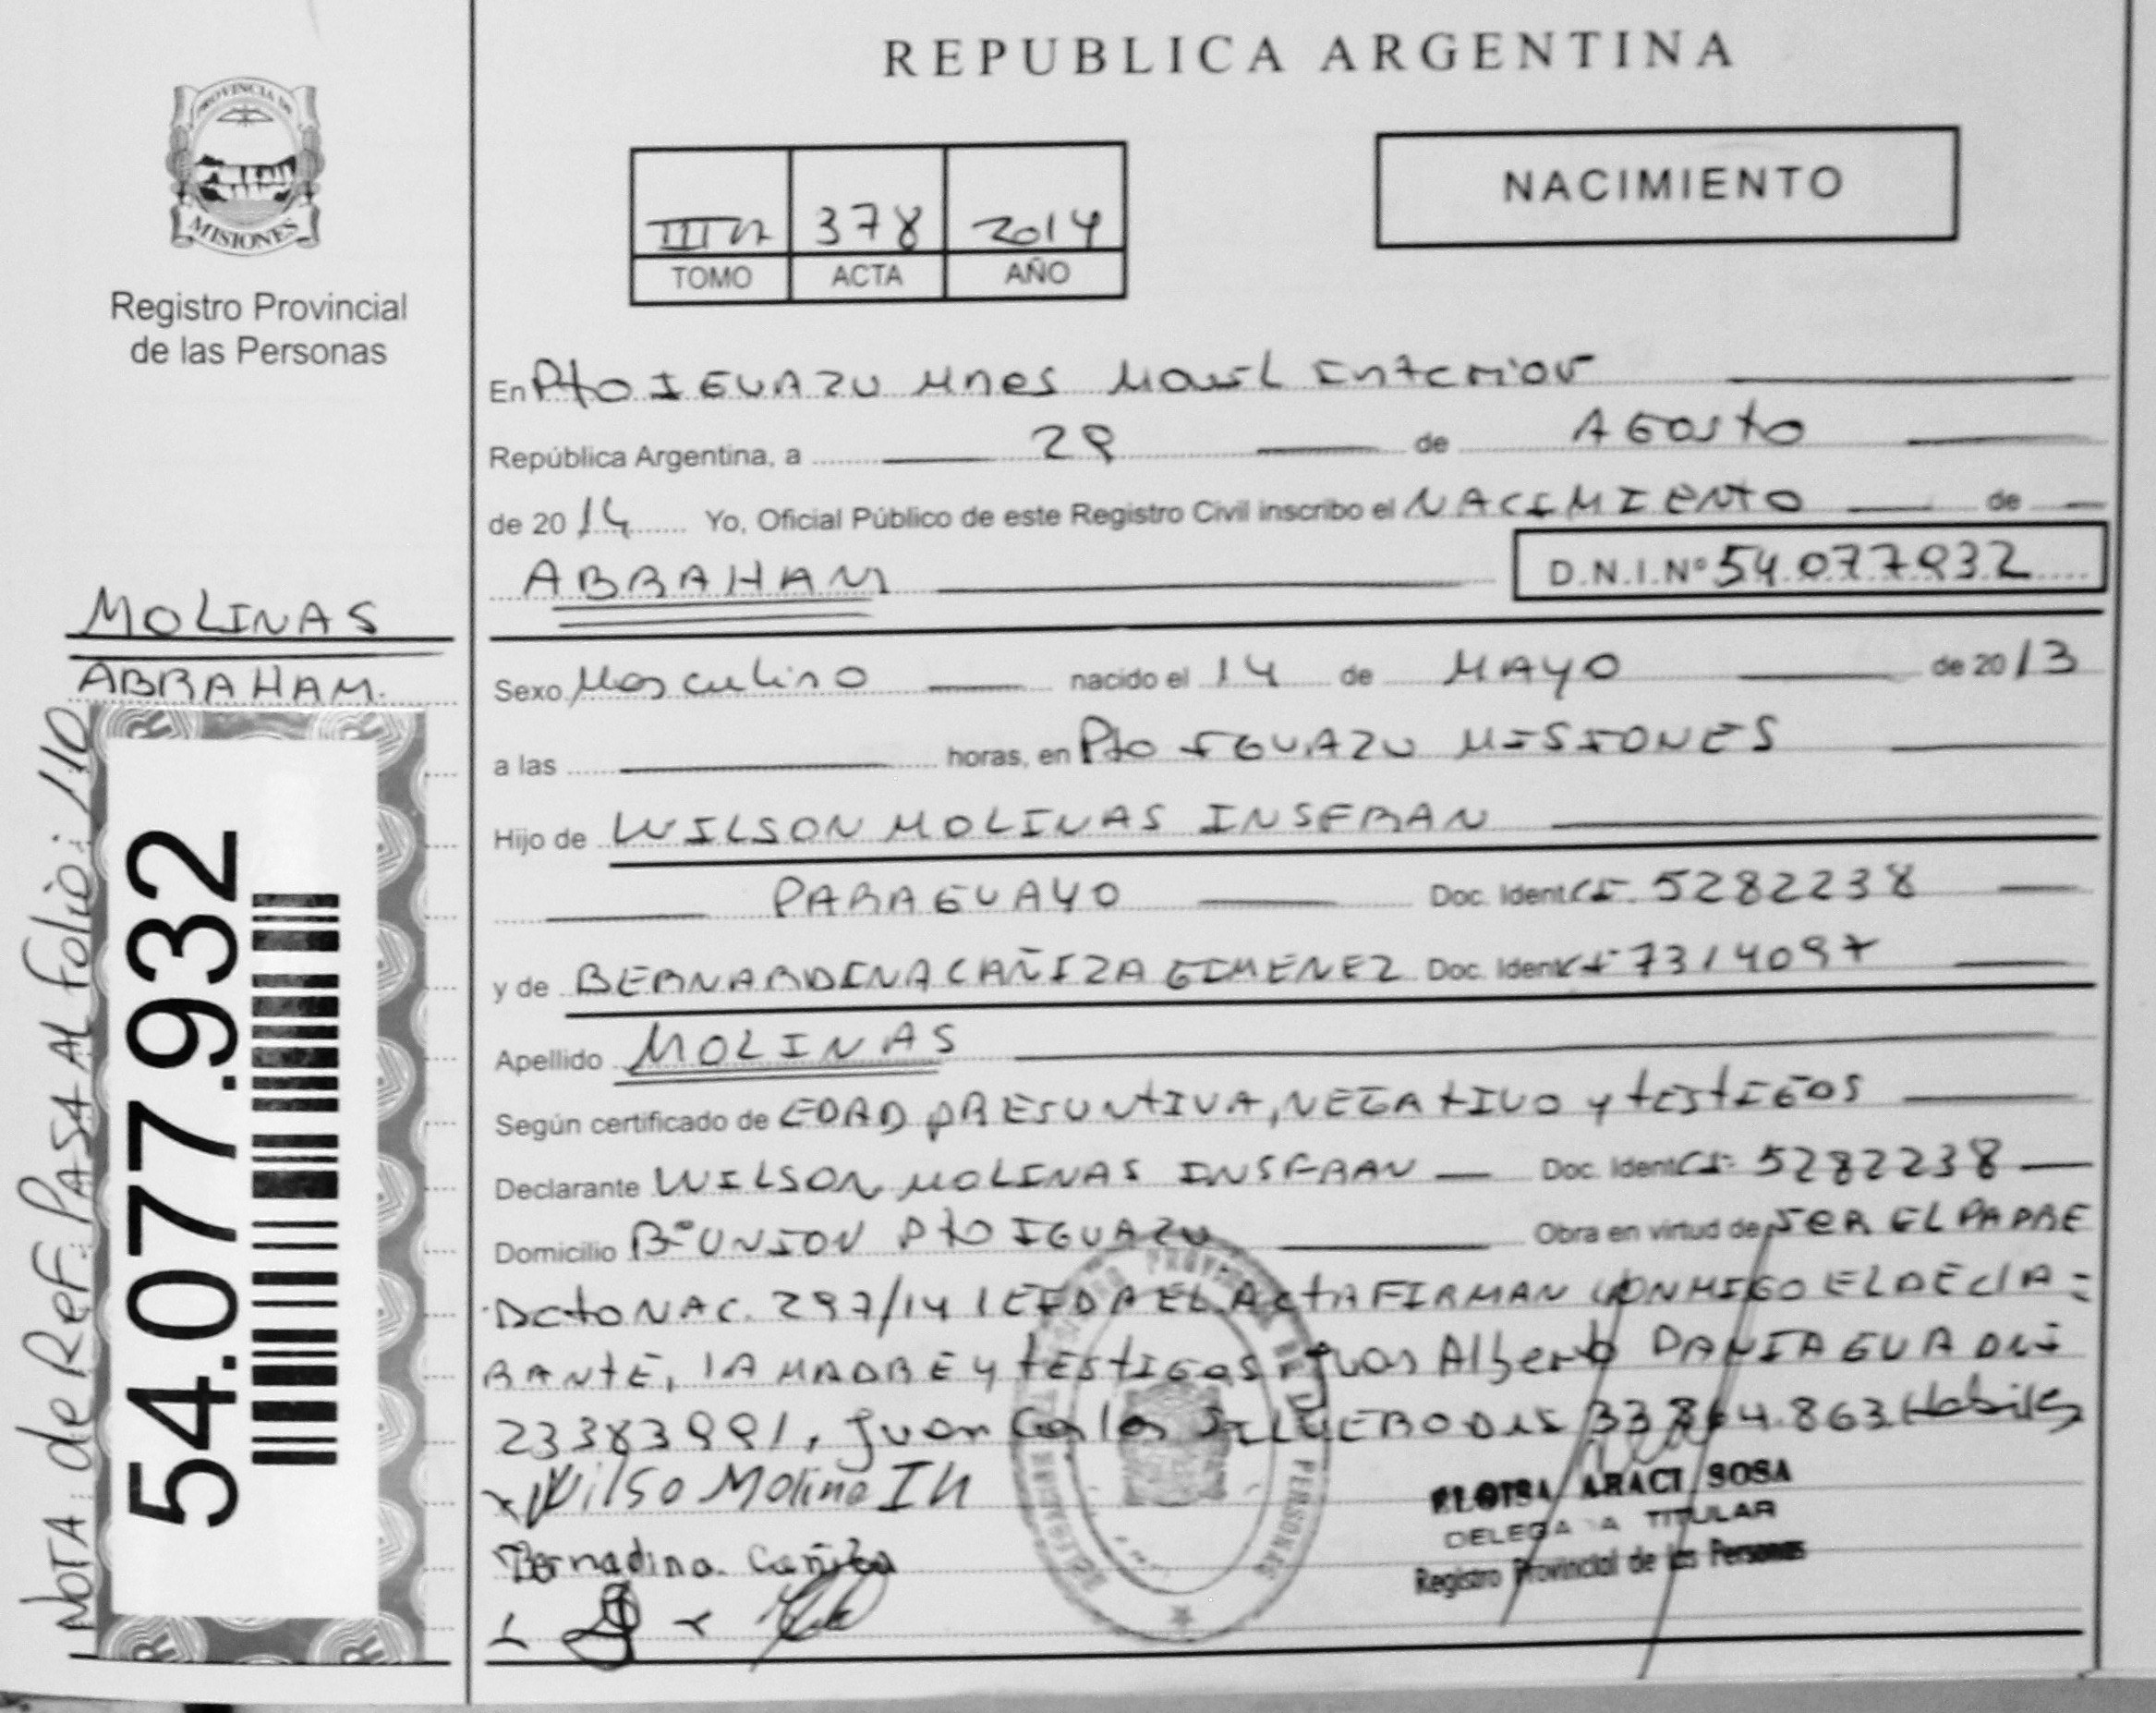 REPUBLICA ARGENTINA
PROVINCIA DE
MISIONES
Registro Provincial
de las Personas
378 2014
TOMO ACTA AÑO
NACIMIENTO
En Pto IGUAZU Mnes Movil Interior
República Argentina, a 29 de AGosto
de 2014 Yo, Oficial Público de este Registro Civil inscribo el NACIMIENTO de
ABRAHAM D.N.I.Nº 54.077932
MOLINAS
ABRAHAM.
Sexo Masculino nacido el 14 de MAYO de 2013
a las horas, en Pto IGUAZU MISIONES
Hijo de WILSON MOLINAS INSFRAN
PARAGUAYO Doc. Ident. CI. 5282238
y de BERNARDINA CAÑIZA GIMENEZ Doc. Ident. CI 7314097
Apellido MOLINAS
Según certificado de EDAD PRESUNTIVA, NEGATIVO y testIGOS
Declarante WILSON MOLINAS INSFRAN Doc. Ident. CI 5282238
Domicilio Bº UNION Pto IGUAZU Obra en virtud de SER EL PADRE
Dcto NAC. 297/14 LEIDA EL ActA FIRMAN CONMIGO EL DECLA=
RANTE, LA MADRE y tEStIGOS Juan Alberto PANIAGUA DNI
23383991, Juan Carlos DNI 33.864.863 Habiles
Wilso Molina IN
Bernadina Cañiza
ELOISA ARACI SOSA
DELEGADA TITULAR
Registro Provincial de las Personas
54.077.932
NOTA de Ref: PASA AL folio: 110